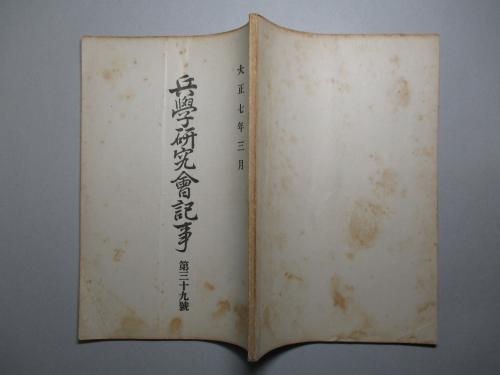 大正七年三月
兵學研究會記事
第三十九號